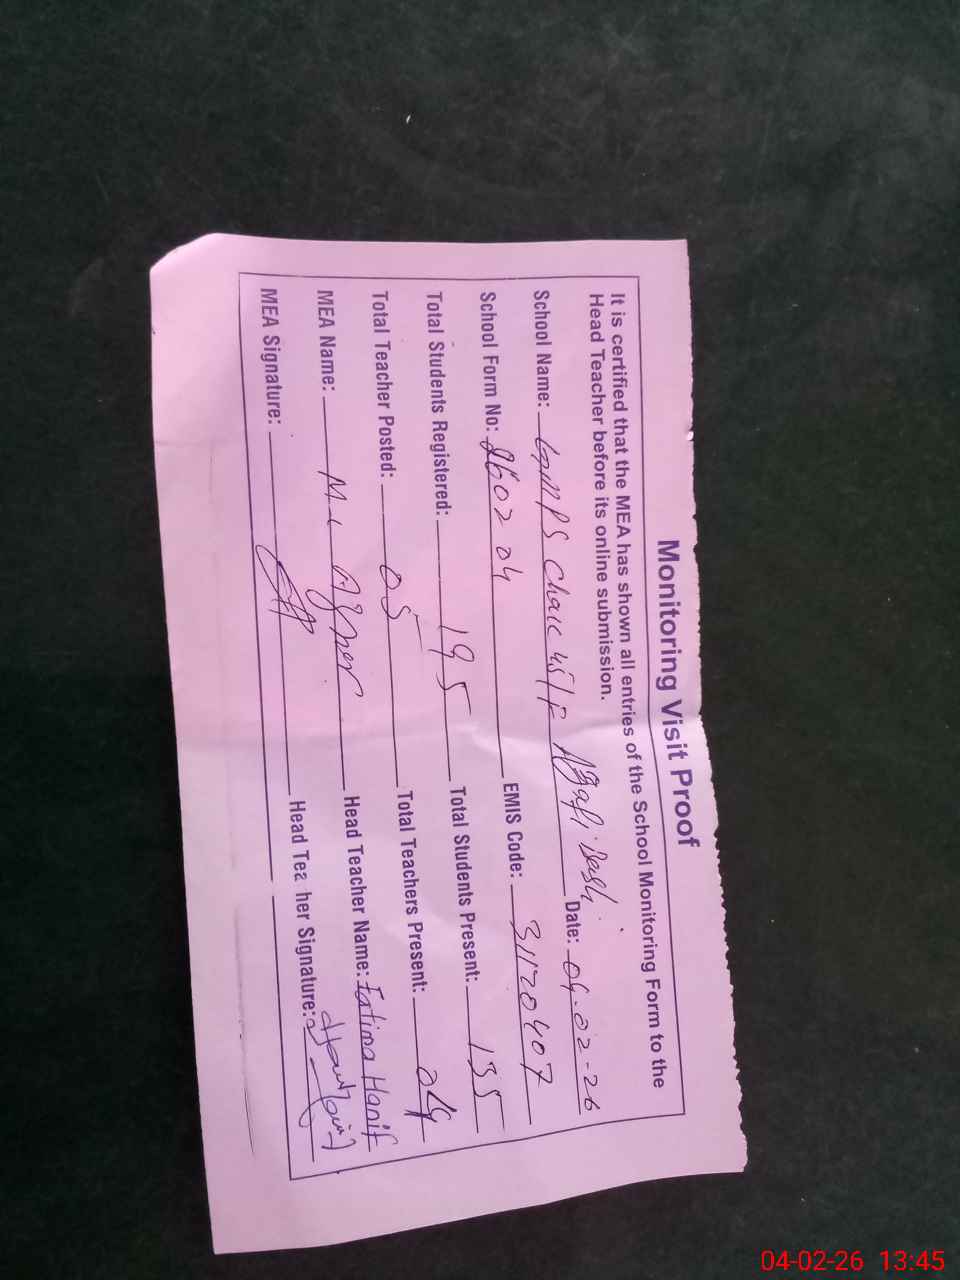 Monitoring Visit Proof
It is certified that the MEA has shown all entries of the School Monitoring Form to the
Head Teacher before its online submission.
School Name: GMMPS Chak 45/F Date: 04-02-26
School Form No: 260204 EMIS Code: 31120407
Total Students Registered: 195 Total Students Present: 135
Total Teacher Posted: 05 Total Teachers Present: 04
MEA Name: M. Head Teacher Name: Fatima Hanif
MEA Signature: Head Teacher Signature:
04-02-26 13:45